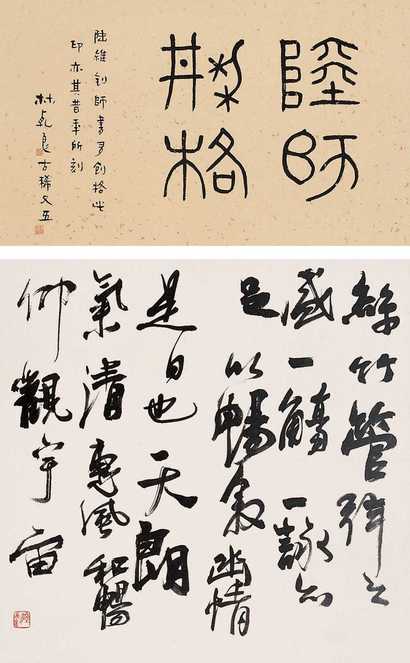 陸師
刱格
陸維釗師書多創格此
印亦其昔年所刻
林乾良古稀又五
絲竹管弦之
盛一觴一詠亦
足以暢敘幽情
是日也天朗
氣清惠風和暢
仰觀宇宙